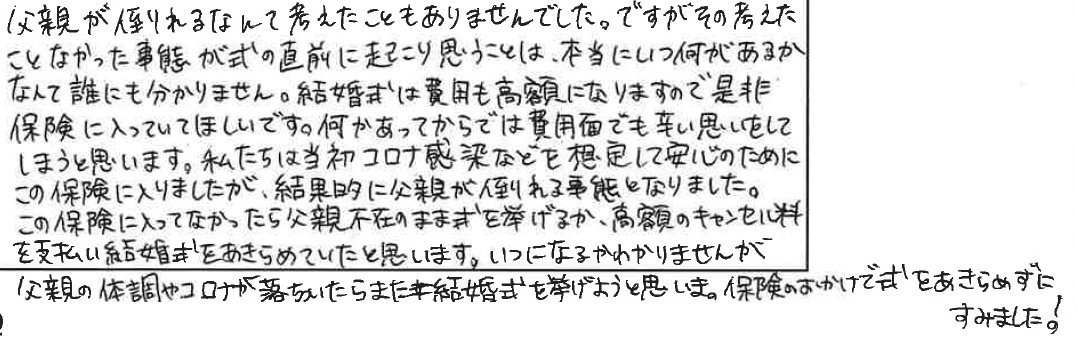 父親が倒れるなんて考えたこともありませんでした。ですがその考えた
ことなかった事態が式の直前に起こり思うことは、本当にいつ何があるか
なんて誰にも分かりません。結婚式は費用も高額になりますので是非
保険に入っていてほしいです。何かあってからでは費用面でも辛い思いをして
しまうと思います。私たちは当初コロナ感染などを想定して安心のために
この保険に入りましたが、結果的に父親が倒れる事態となりました。
この保険に入ってなかったら父親不在のまま式を挙げるか、高額のキャンセル料
を支払い結婚式をあきらめていたと思います。いつになるかわかりませんが
父親の体調やコロナが落ちいたらまた結婚式を挙げようと思いま。保険のおかげで式をあきらめずに
すみました!。